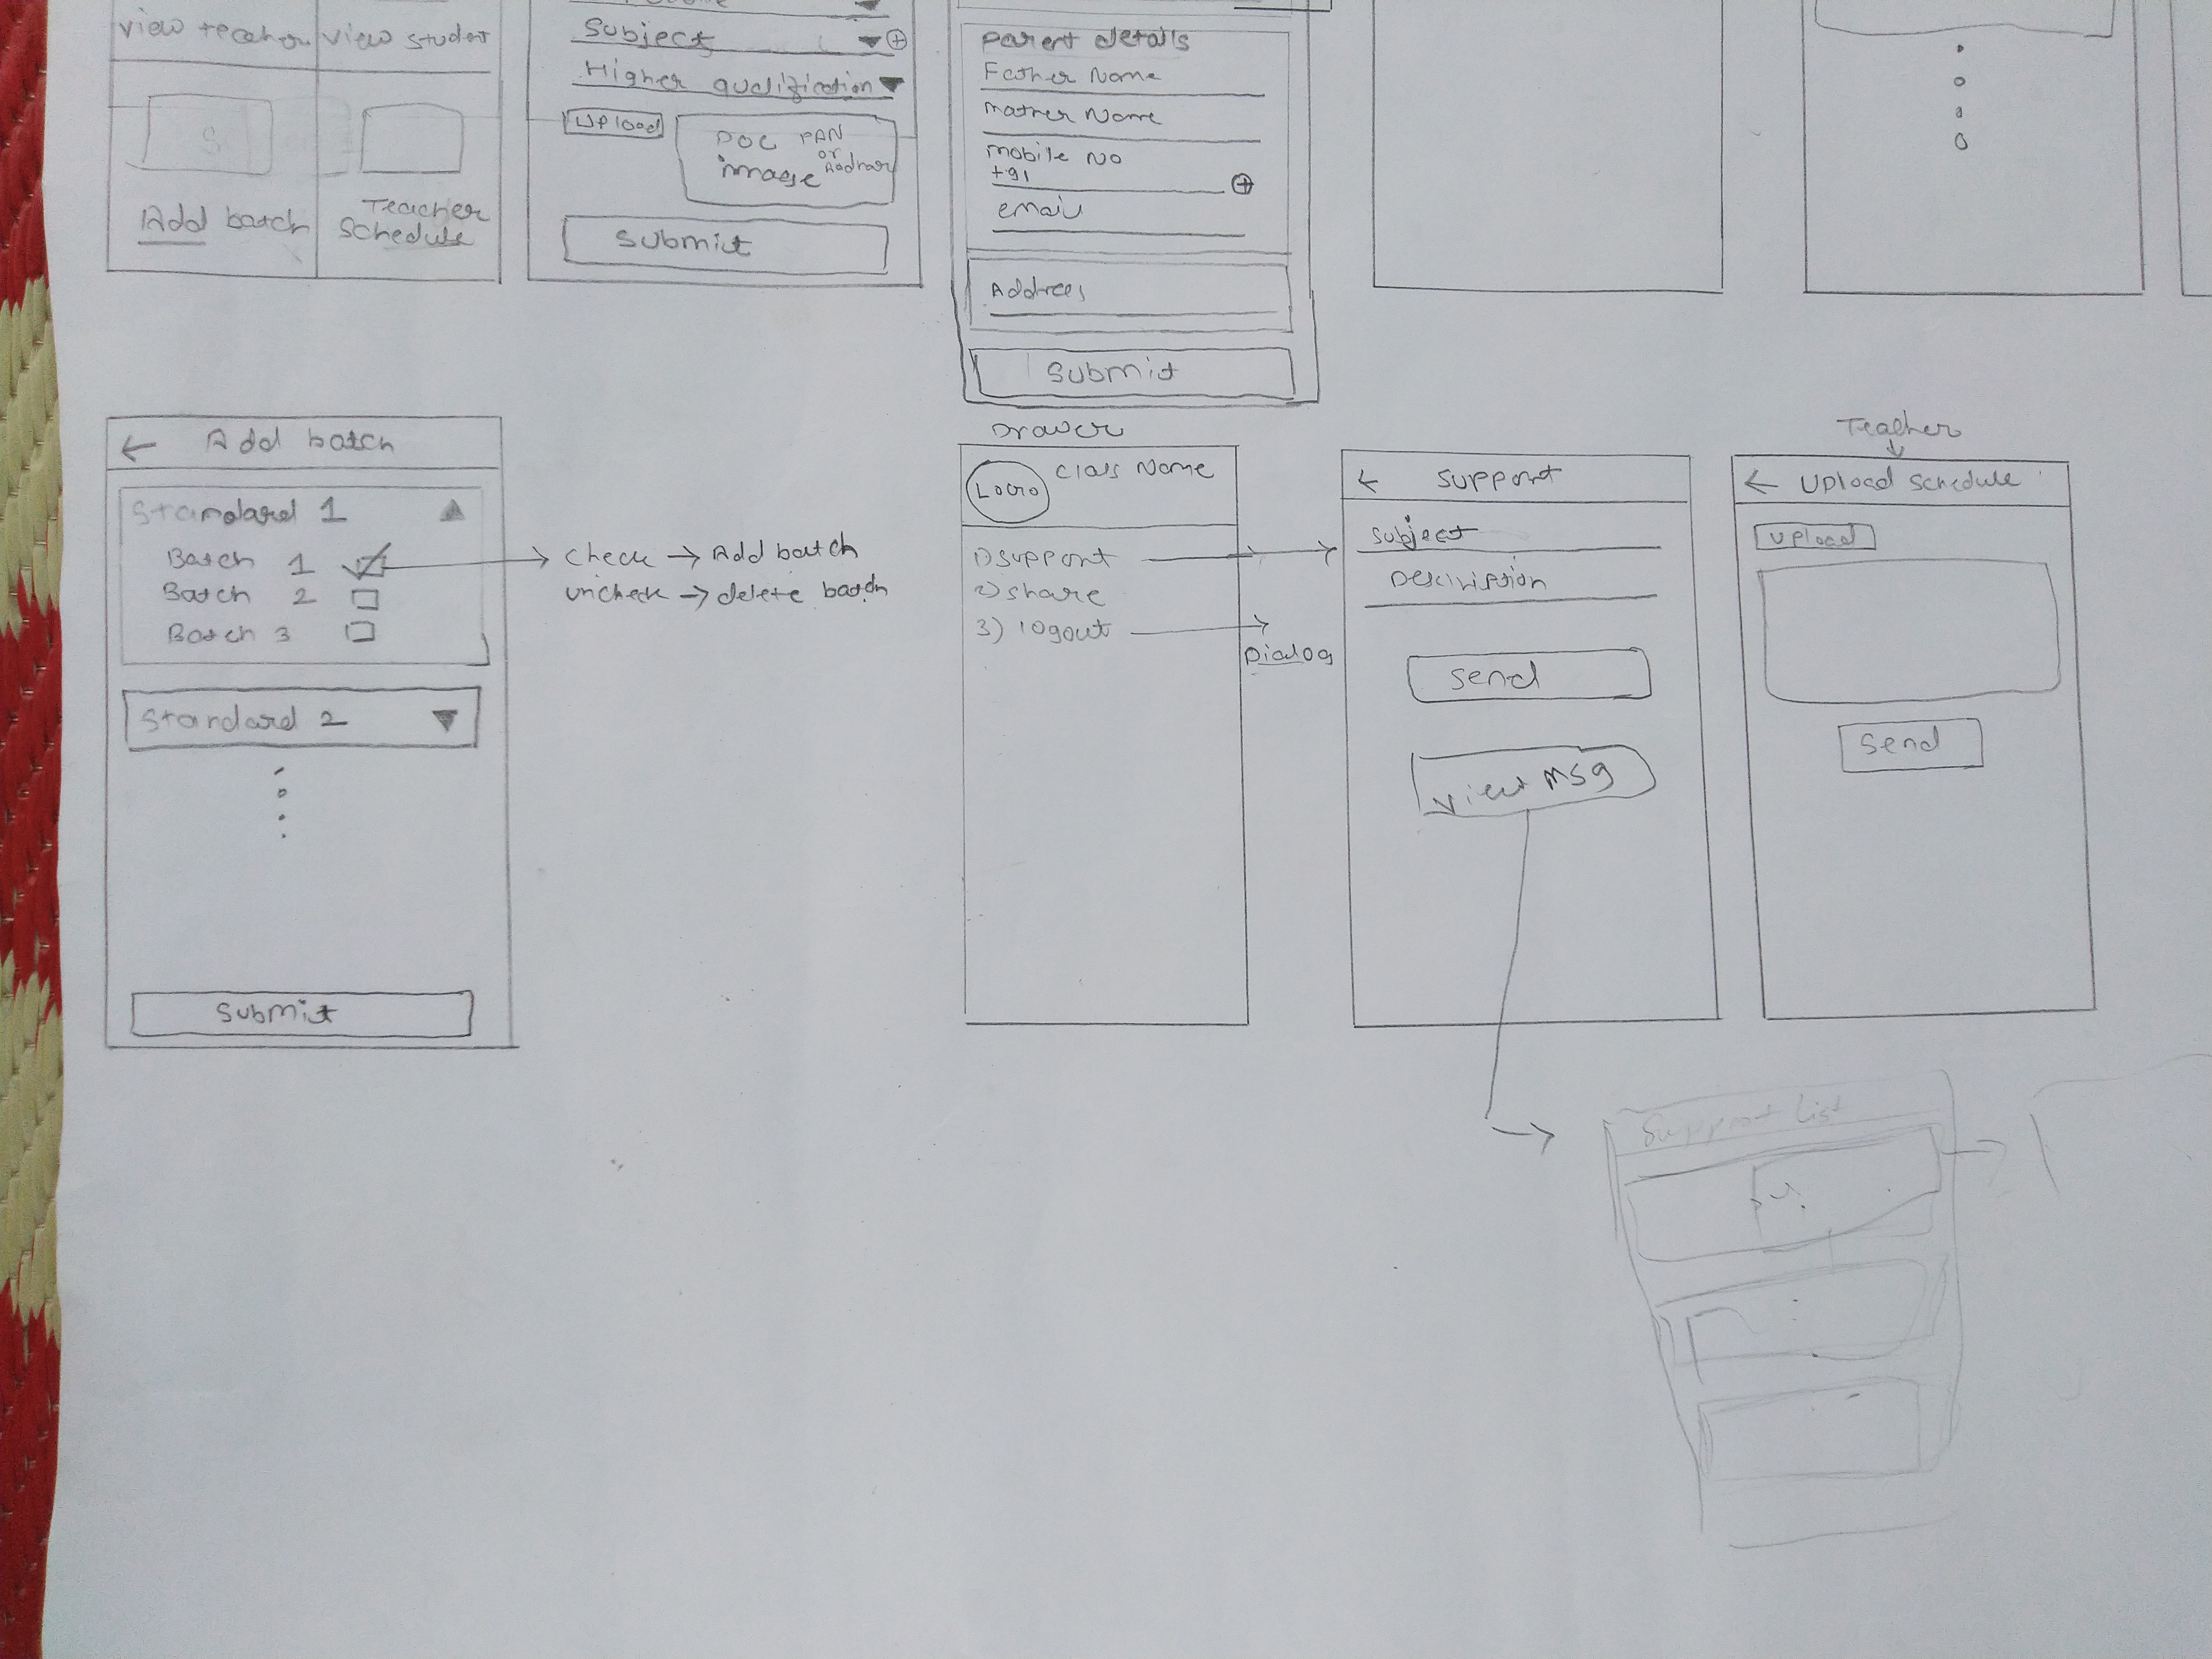 view teacher
view student
Add batch
Teacher
Schedule
Subject
Higher qualification
Upload
DOC PAN
or
image Aadhar
Submit
Parent details
Father Name
Mother Name
Mobile No
+91
email
Address
Submit
← Add batch
Standard 1
Batch 1
Batch 2
Batch 3
check → Add batch
uncheck → delete batch
Standard 2
Submit
Drawer
Logo
Class Name
1) support
2) share
3) logout
Dialog
← Support
Subject
Description
Send
View Msg
Teacher
← Upload schedule
upload
Send
Support List